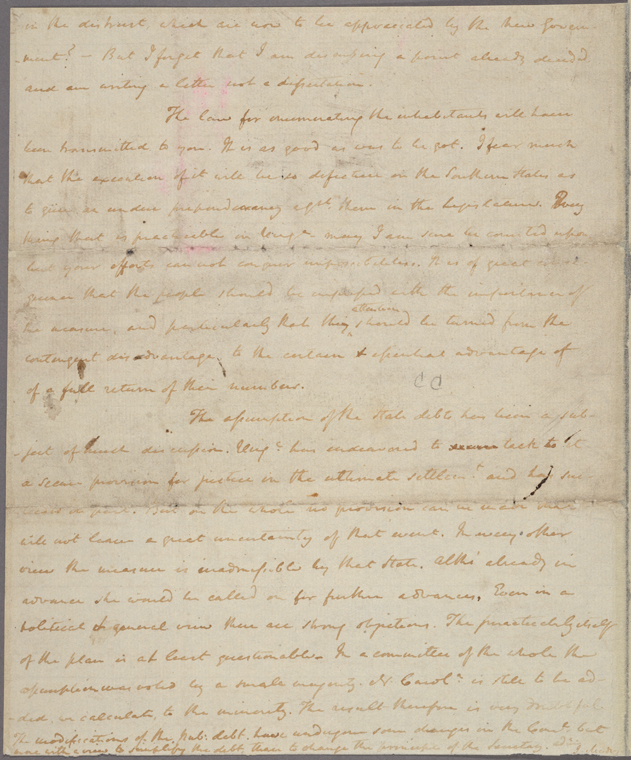 in the distrust, which are now to be appreciated by the new Govern-
-ment? — But I forget that I am discussing a point already decided
and am writing a letter not a dissertation.
The law for enumerating the inhabitants will have
been transmitted to you. It is as good as was to be got. I fear much
that the execution of it will be so defective in the Southern States as
to give an undue preponderancy agst. them in the Legislature. Every
thing that is practicable in may I am sure be counted upon
but your efforts cannot conquer impossibilities. It is of great conse-
quence that the people should be impressed with the importance of
the measure, and particularly that their attention should be turned from the
contingent disadvantage, to the certain & essential advantage of
of a full return of their numbers.
CC
The assumption of the State debts has been a sub-
-ject of much discussion. Virga. has endeavored to tack to it
a secure provision for justice in the ultimate settlemt. and has suc-
ceeded in part. But on the whole no provision can be made that
will not leave a great uncertainty of that event. In every other
view the measure is inadmissible by that State. Altho' already in
advance she would be called on for further advances. Even in a
political & general view there are strong objections. The practicability itself
of the plan is at least questionable. In a committee of the whole the
assumption was voted by a small majority. N. Carola. is still to be ad-
-ded, we calculate, to the minority. The result therefore is very doubtful.
The modifications of the pub: debt, have undergone some changes in the Comte. but
more with a view to simplify the debt, than to change the principle of the Secretary.